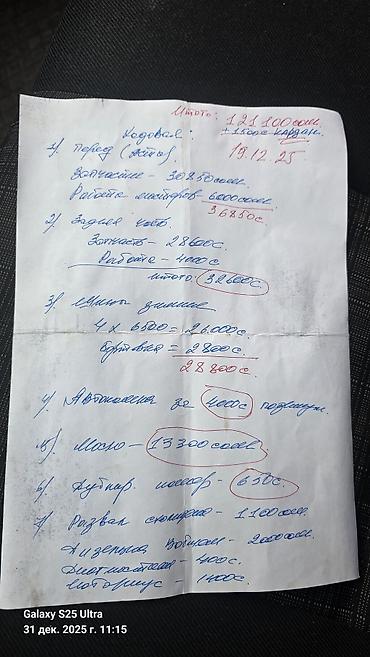 Итого: 121 100 сом
+ 1500с кардан.
Ходовая:
19.12.25
1) перед (
Запчасти - 30850 сом
Работа мастеров - 6000 сом
36850с.
2) Задняя часть.
Запчасть - 28600с.
Работа - 4000с
итого: 32600с
3) зимние
4 x 6500 = 26000с.
Бортовка = 2800с.
28800с.
4) за 4000с
5) Масло - 13300 сом
6) Дубликат номер - 650с.
7) Развал схождение - 1100 сом
2000 сом.
Диагностика - 400с.
Нотариус - 1400с.
Galaxy S25 Ultra
31 дек. 2025 г. 11:15